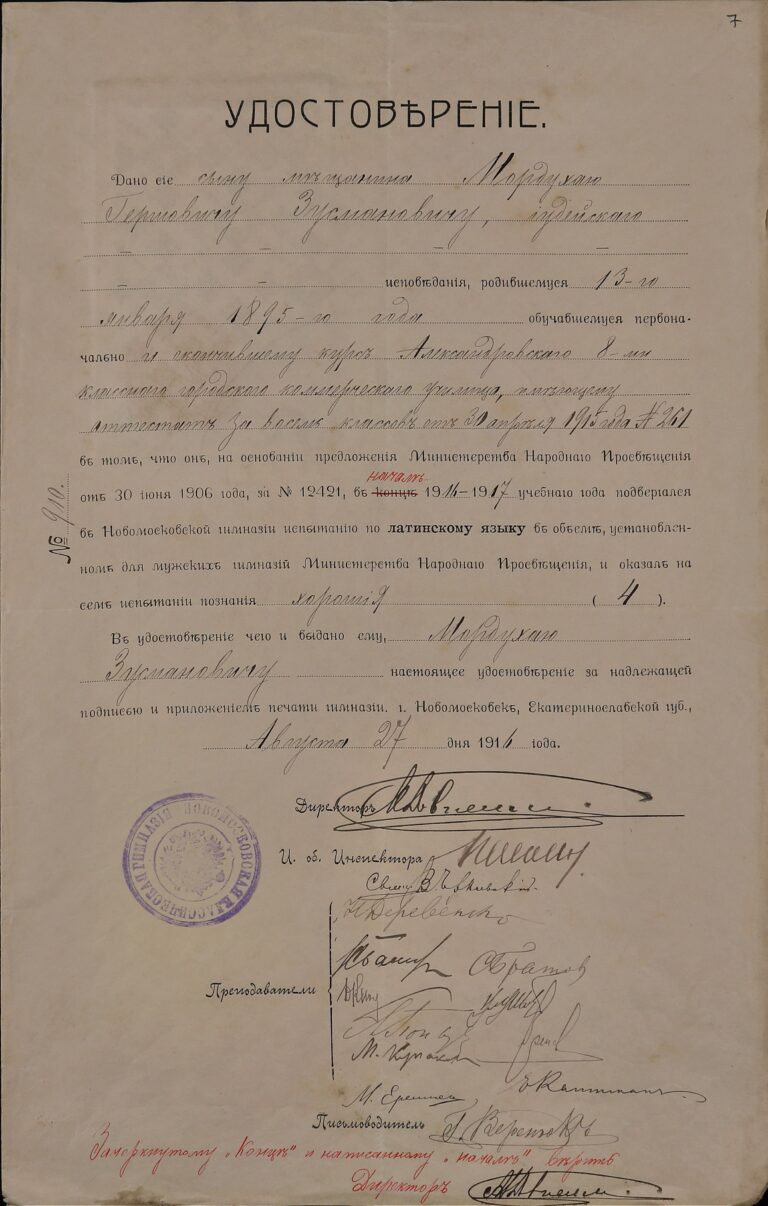 7
УДОСТОВѢРЕНІЕ.
Дано сіе сыну мѣщанина Мордухаю
Гершовичу Зусмановичу, іудейскаго
исповѣданія, родившемуся 13-го
января 1895-го года обучавшемуся первона-
чально и окончившему курсъ Александровскаго 8-ми
класснаго городского коммерческаго училища, имѣющему
аттестатъ за восемь классовъ отъ 30 апрѣля 1915 года № 261
въ томъ, что онъ, на основаніи предложенія Министерства Народнаго Просвѣщенія
началѣ
отъ 30 іюня 1906 года, за № 12421, въ концѣ 1916-1917 учебнаго года подвергался
въ Новомосковской гимназіи испытанію по латинскому языку въ объемѣ, установлен-
номъ для мужскихъ гимназій Министерства Народнаго Просвѣщенія, и оказалъ на
семъ испытаніи познанія хорошія ( 4 ).
Въ удостовѣреніе чего и выдано ему, Мордухаю
Зусмановичу настоящее удостовѣреніе за надлежащей
подписью и приложеніемъ печати гимназіи. г. Новомосковскъ, Екатеринославской губ.,
Августа 27 дня 1916 года.
№ 910.
НОВОМОСКОВСКАЯ КЛАССИЧЕСКАЯ ГИМНАЗІЯ
Директоръ
И. об. Инспектора
Преподаватели
С. Братов
Письмоводитель
Зачеркнутому „концѣ" и написанному „началѣ" вѣрить
Директоръ